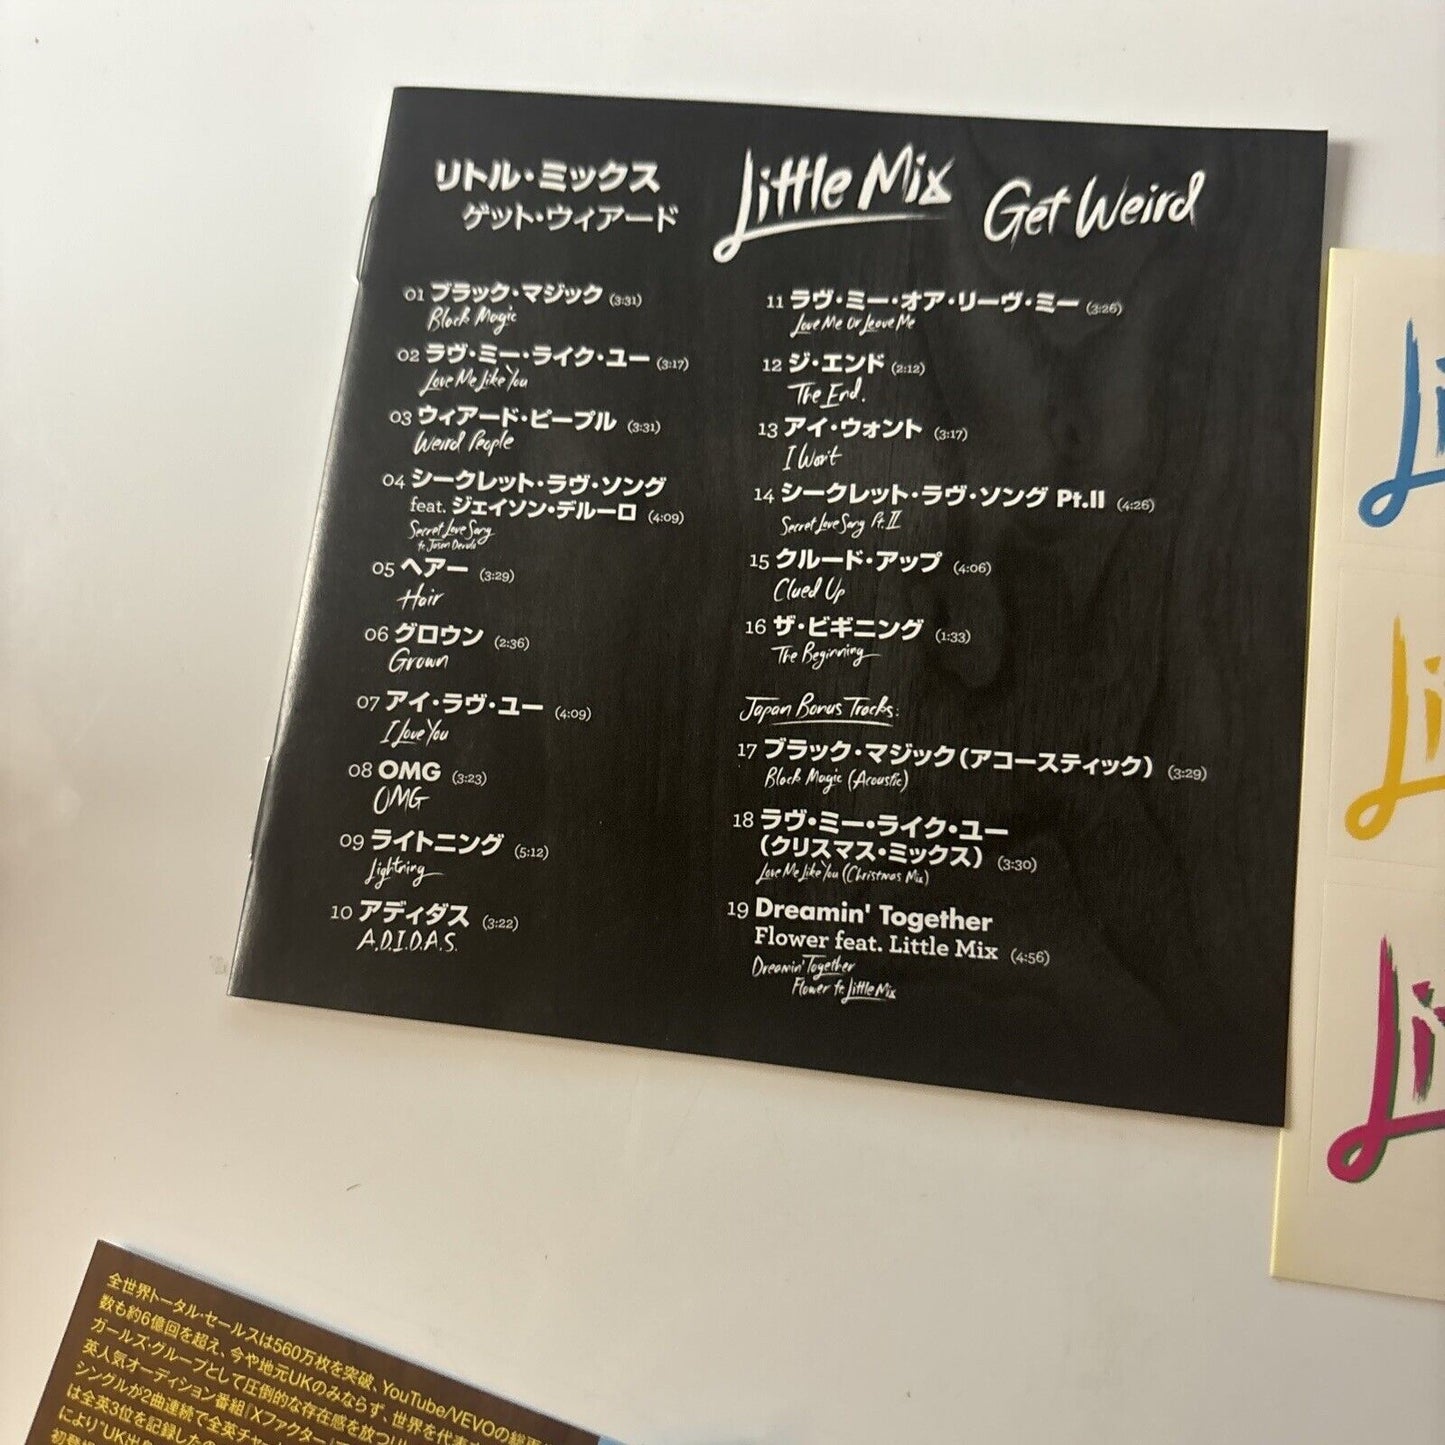 リトル・ミックス
ゲット・ウィアード
Little Mix Get Weird
01 ブラック・マジック (3:31)
Black Magic
02 ラヴ・ミー・ライク・ユー (3:17)
Love Me Like You
03 ウィアード・ピープル (3:31)
Weird People
04 シークレット・ラヴ・ソング
feat. ジェイソン・デルーロ (4:09)
Secret Love Song
ft. Jason Derulo
05 ヘアー (3:29)
Hair
06 グロウン (2:36)
Grown
07 アイ・ラヴ・ユー (4:09)
I Love You
08 OMG (3:23)
OMG
09 ライトニング (5:12)
Lightning
10 アディダス (3:22)
A.D.I.D.A.S.
11 ラヴ・ミー・オア・リーヴ・ミー (3:26)
Love Me Or Leave Me
12 ジ・エンド (2:12)
The End.
13 アイ・ウォント (3:17)
I Won't
14 シークレット・ラヴ・ソング Pt.II (4:26)
Secret Love Song Pt. II
15 クルード・アップ (4:06)
Clued Up
16 ザ・ビギニング (1:33)
The Beginning
Japan Bonus Tracks:
17 ブラック・マジック(アコースティック) (3:29)
Black Magic (Acoustic)
18 ラヴ・ミー・ライク・ユー
(クリスマス・ミックス) (3:30)
Love Me Like You (Christmas Mix)
19 Dreamin' Together
Flower feat. Little Mix (4:56)
Dreamin' Together
Flower ft. Little Mix
Li
Li
Li
全世界トータル・セールスは560万枚を突破、YouTube/VEVOの総再
数も約6億回を超え、今や地元UKのみならず、世界を代表
ガールズ・グループとして圧倒的な存在感を放つ
英人気オーディション番組『Xファクター』
シングルが2曲連続で全英チャ
は全英3位を記録した
により"UK出
初登場